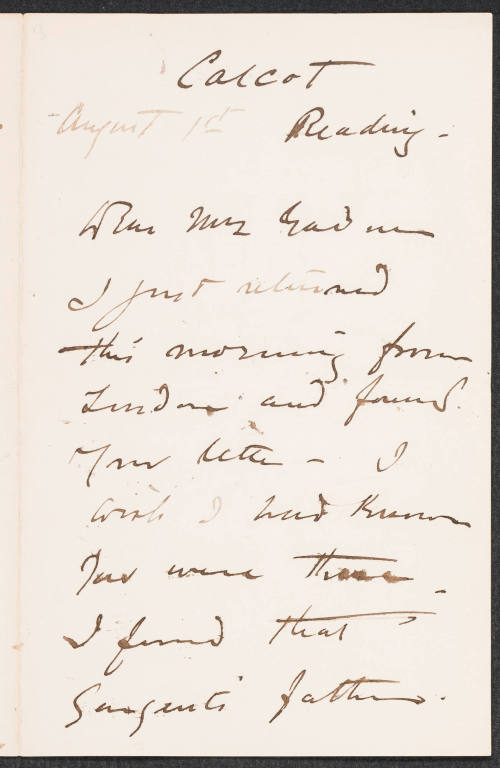 Calcot
August 1st Reading -
Dear Mrs Gardner
I just returned
this morning from
London and found
Your letter - I
wish I had known
You were there -
I found that
Sargent's father